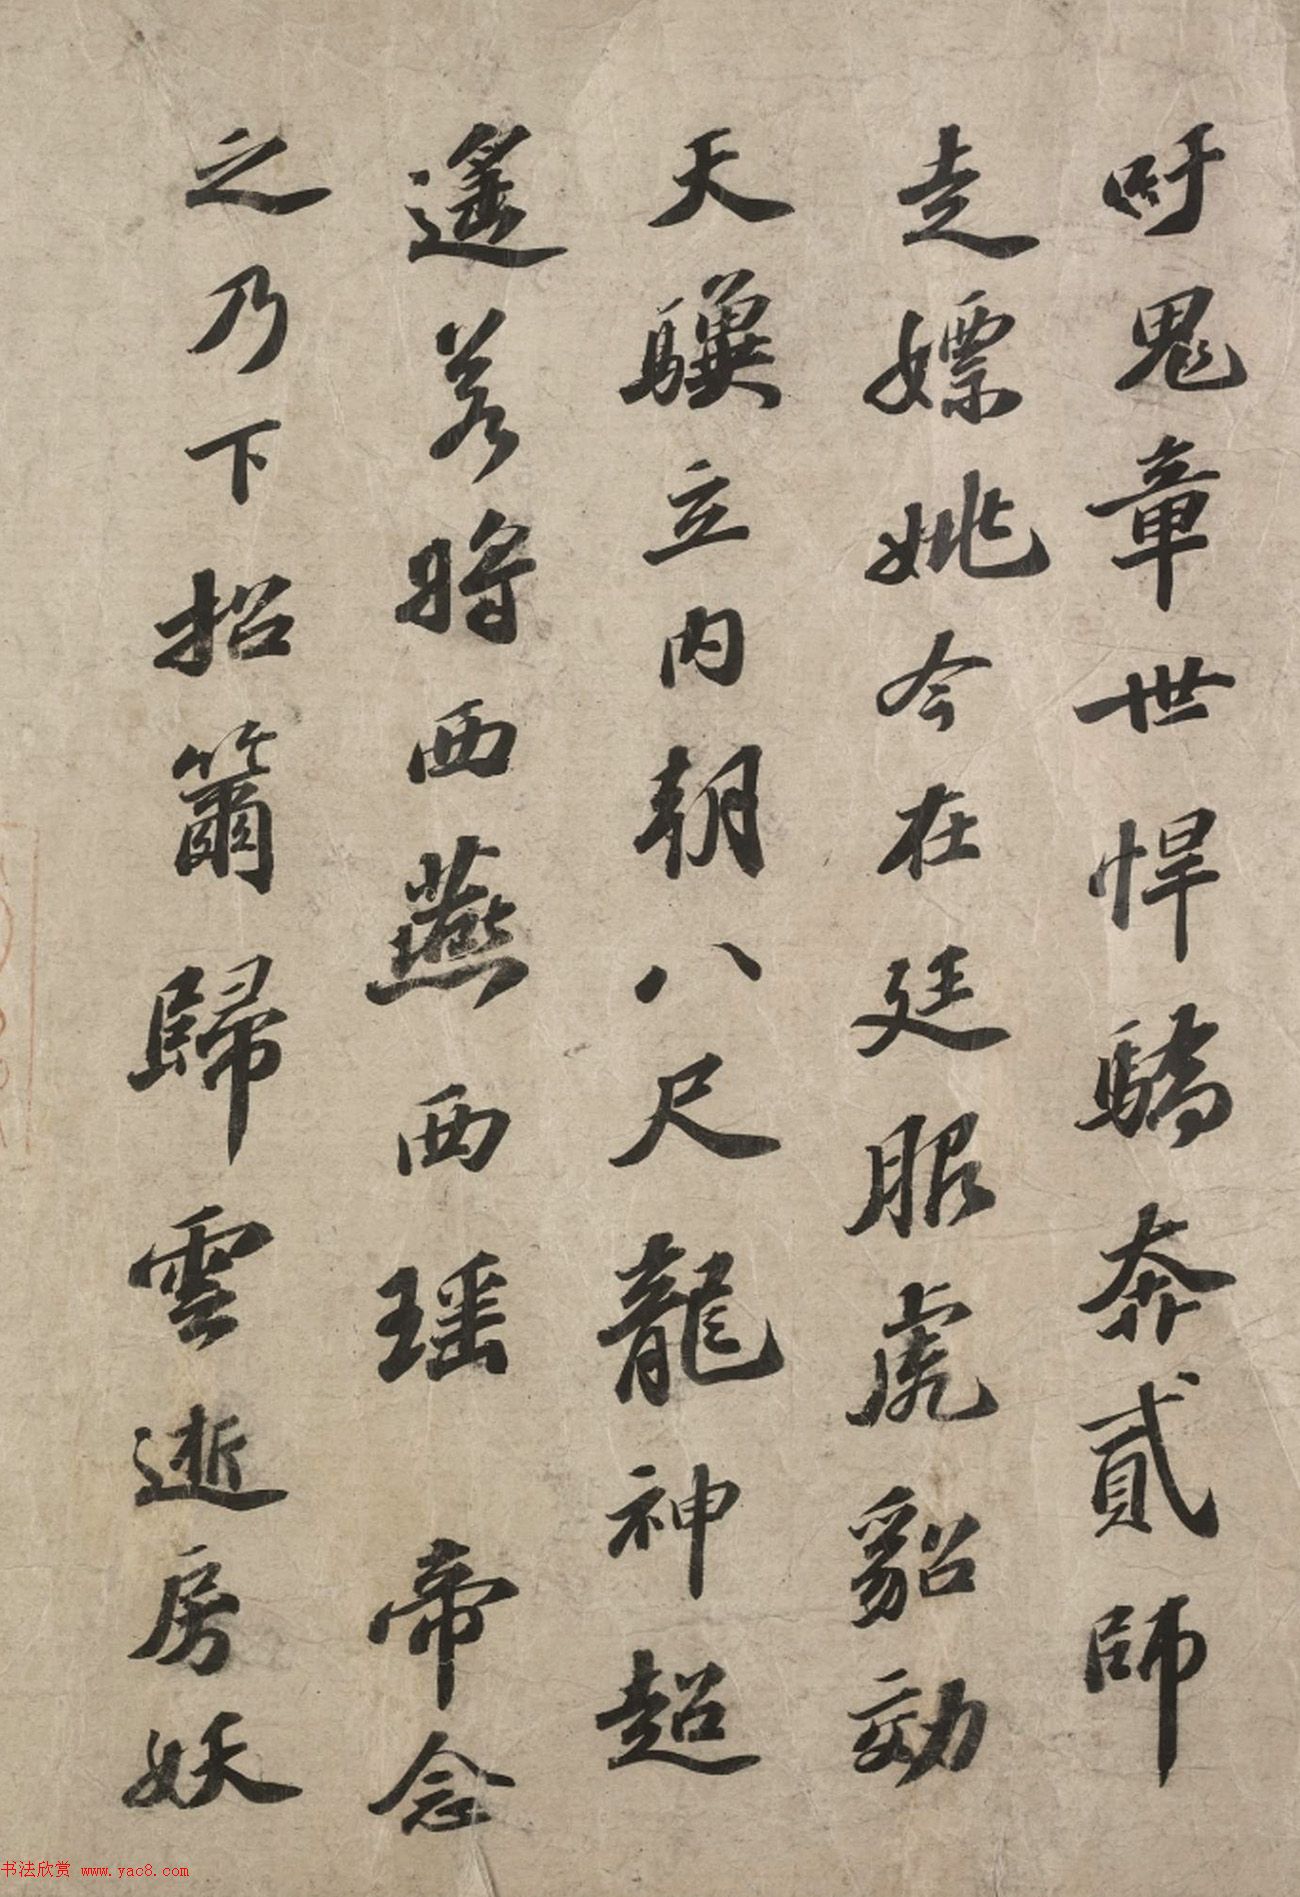 吁鬼章世悍驕奔貳師
走嫖姚今在廷服虎貂効
天驥立內朝八尺龍神超
遙若將西燕西瑤帝念
之乃下招籋歸雲逝房妖
书法欣赏 www.yac8.com